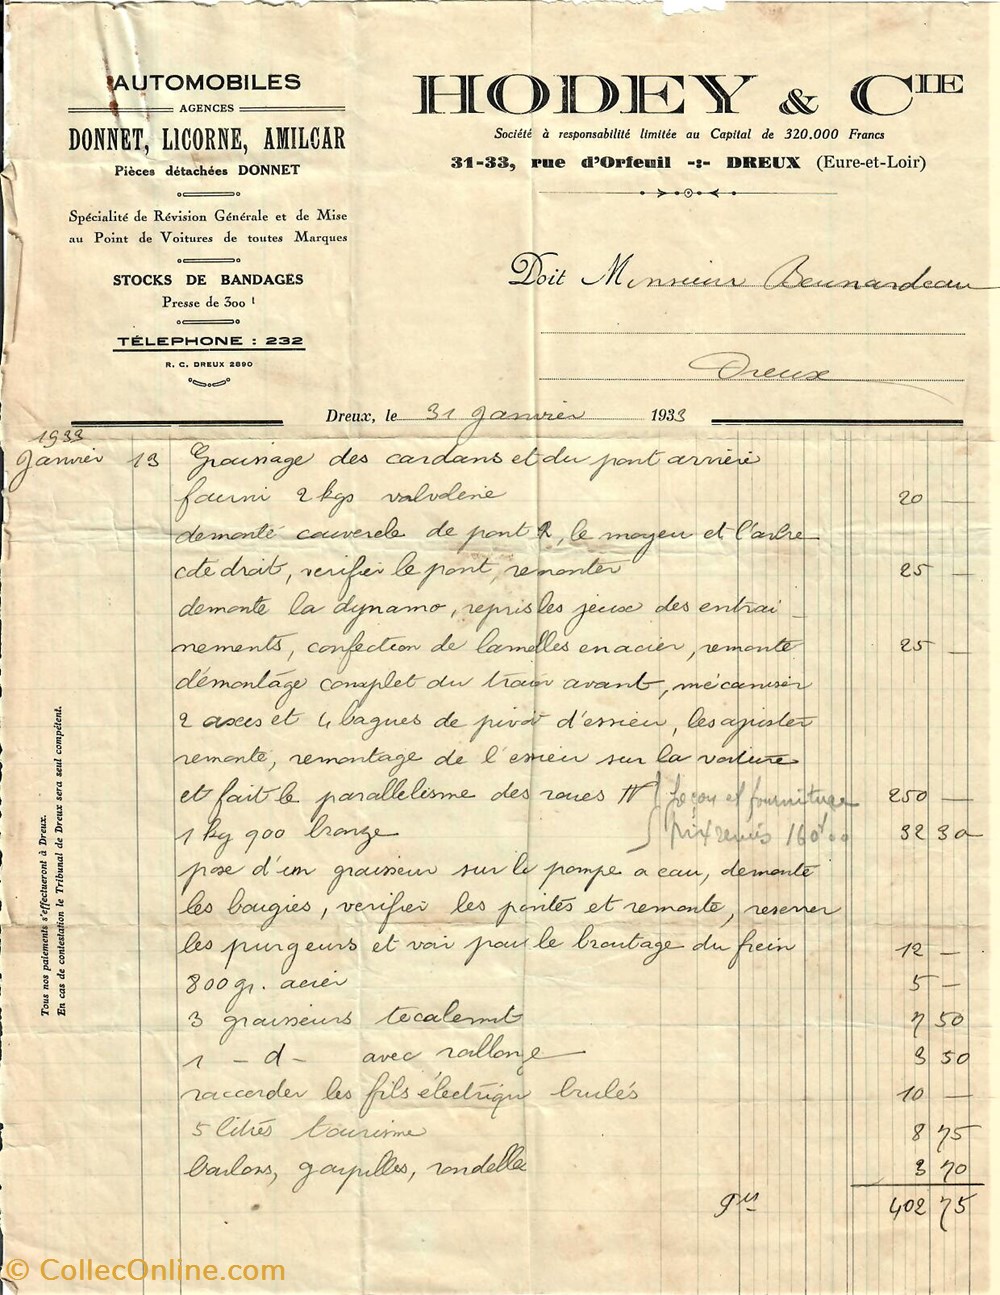 AUTOMOBILES
AGENCES
DONNET, LICORNE, AMILCAR
Pièces détachées DONNET
Spécialité de Révision Générale et de Mise
au Point de Voitures de toutes Marques
STOCKS DE BANDAGES
Presse de 300 t
TÉLÉPHONE : 232
R. C. DREUX 2890
HODEY & CIE
Société à responsabilité limitée au Capital de 320.000 Francs
31-33, rue d'Orfeuil -:- DREUX (Eure-et-Loir)
Doit Monsieur Beunardeau
Dreux
Dreux, le 31 Janvier 1933
1933
Janvier 13 Graissage des cardans et du pont arrière
fourni 2 kgs valvoline 20 —
demonté couvercle de pont R, le moyeu et l'arbre
coté droit, verifier le pont, remonter 25 —
demonte la dynamo, repris les jeux des entrai-
nements, confection de lamelles en acier, remonte 25 —
démontage complet du train avant, mécaniser
2 axes et 4 bagues de pivot d'essieu, les ajuster
remonte, remontage de l'essieu sur la voiture
et fait le parallelisme des roues AV façon et fourniture 250 —
1 kg 900 bronze prix remis 160f00 32 30
pose d'un graisseur sur la pompe a eau, demonté
les bougies, verifier les pointés et remonte, reserrer
les purgeurs et voir pour le broutage du frein 12 —
800 gr. acier 5 —
3 graisseurs tecalemit 7 50
1 - d - avec rallonge 3 50
raccorder les fils électriqu brulés 10 —
5 litres tourisme 8 75
boulons, goupilles, rondelles 3 70
402 75
Tous nos paiements s'effectueront à Dreux.
En cas de contestation le Tribunal de Dreux sera seul compétent.
© CollecOnline.com